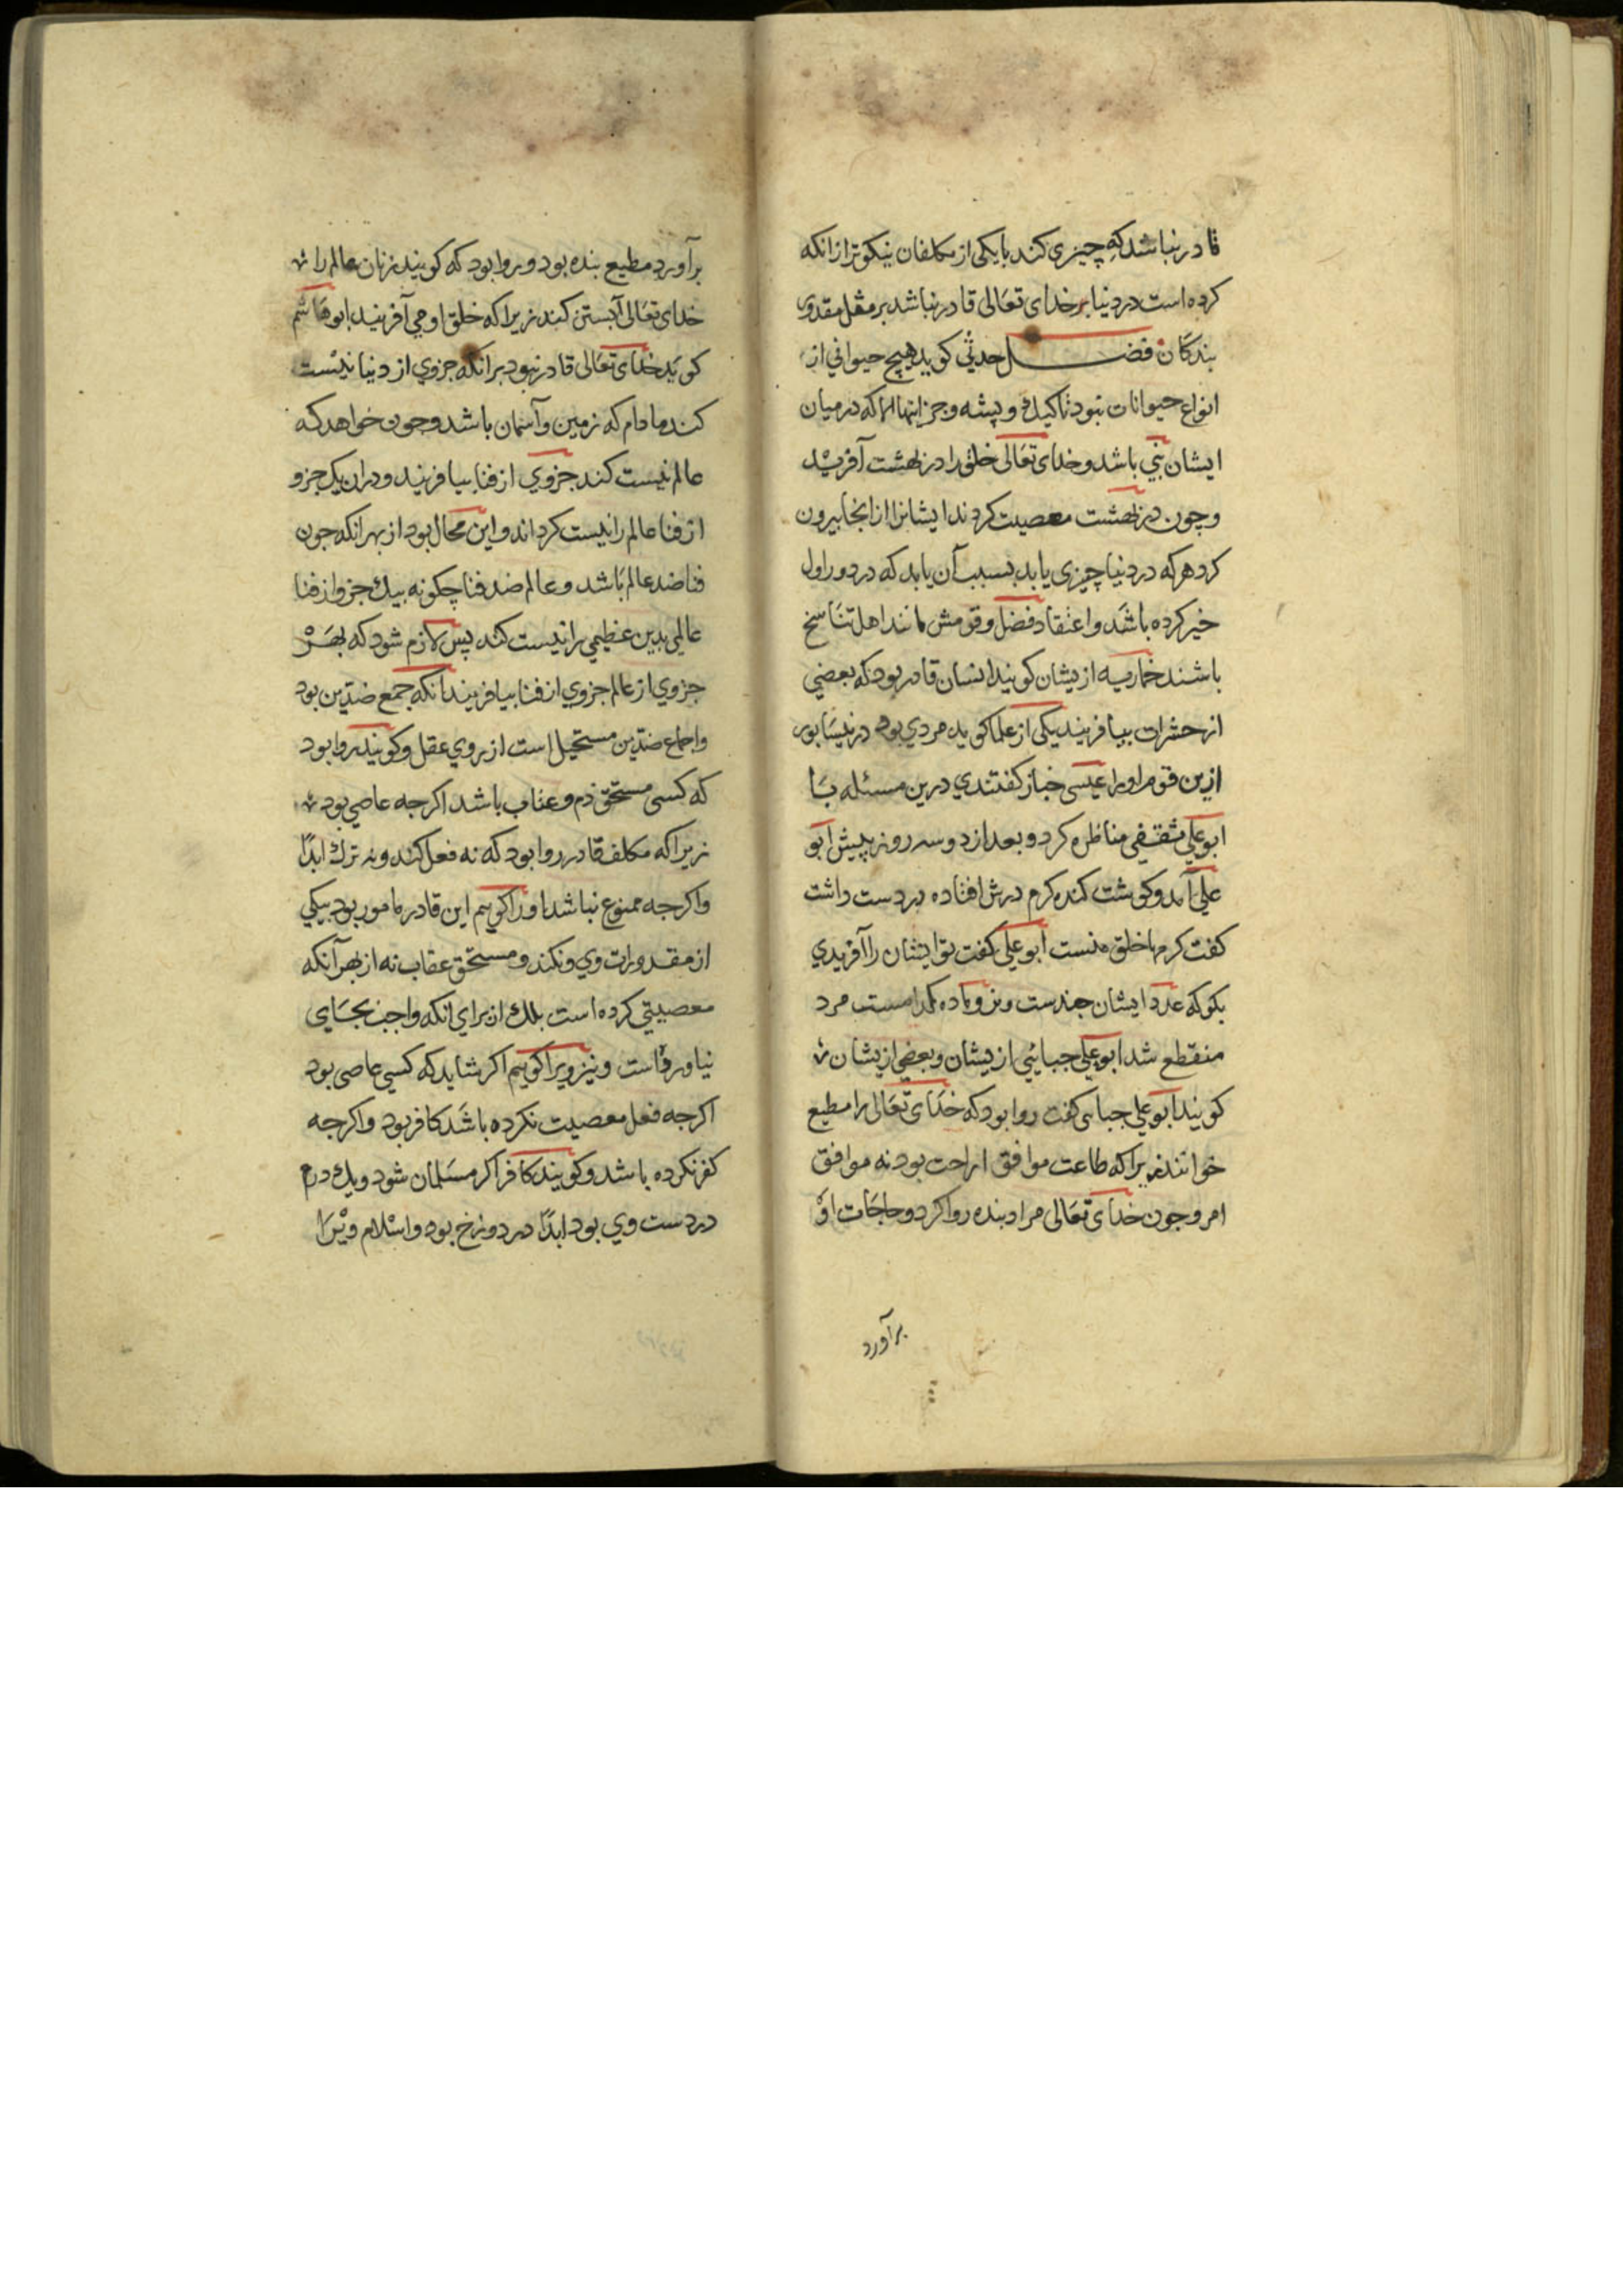 قادر نباشد که چیزی کند بایکی از مکلفان نیکوتر ازانکه
کرده است در دنیا بر خدای تعالی قادر نباشد بر مثل مقدور
بندکان فضل حدثی کوید هیچ حیوانی از
انواع حیوانات نبود تا کیک و پشه و جز اینها الا که درمیان
ایشان نبی باشد و خدای تعالی خلق را در بهشت آفرید
و چون در بهشت معصیت کردند ایشانرا ازانجا بیرون
کرد هرکه در دنیا چیزی یابد بسبب آن یابد که در دور اول
خیر کرده باشد و اعتقاد فضل و قومش مانند اهل تناسخ
باشند خماریه ازیشان کویند انسان قادر بود که بعضی
از حشرات بیافریند یکی از علما کوید مردی بود در نیسابور
ازین قوم او را عیسی خباز کفتندی درین مسئله با
ابو علی ثقفی مناظره کرد و بعد از دو سه روز پیش ابو
علی آمد و کوشت کنده کرم درش افتاده بر دست داشت
کفت کرمها خلق منست ابو علی کفت تو ایشان را آفریدی
بکو که عدد ایشان جندست و نر و ماده کدامست مرد
منقطع شد ابو علی جبائی ازیشان و بعضی ازیشان
کویند ابو علی جبائی کفت روا بود که خدای تعالی را مطیع
خوانند زیرا که طاعت موافق ارادت بود نه موافق
امر و جون خدای تعالی مراد بنده روا کرد و حاجات او
برآورد
برآورد مطیع بنده بود و روا بود که کویند زنان عالم را
خدای تعالی آبستن کند زیرا که خلق او می آفریند ابو هاشم
کوید خدای تعالی قادر نبود برانکه جزوی از دنیا نیست
کند مادام که زمین و آسمان باشد و جون خواهد که
عالم نیست کند جزوی از فنا بیافریند و دران یک جزو
از فنا عالم را نیست کرداند و این محال بود از بهر انکه جون
فنا ضد عالم باشد و عالم ضد فنا چکونه بیک جزو از فنا
عالمی بدین عظیمی را نیست کند پس لازم شود که بهر
جزوی از عالم جزوی از فنا بیافریند انکه جمع ضدین بود
واجماع ضدین مستحیل است از روی عقل و کویند روا بود
که کسی مستحق ذم و عذاب باشد اکرجه عاصی بود
زیرا که مکلف قادر روا بود که نه فعل کند و نه ترک ابدا
واکرجه ممنوع نباشد او را کویم این قادر مامور بود بیکی
از مقدورات وی و نکند و مستحق عقاب نه از بهر آنکه
معصیتی کرده است بلک از برای انکه واجب بجای
نیاورده است و نیز ویرا کویم اکر شاید که کسی عاصی بود
اکرجه فعل معصیت نکرده باشد کافر بود و اکرجه
کفر نکرده باشد و کویند کافر اکر مسلمان شود و یک درم
در دست وی بود ابدا در دوزخ بود و اسلام ویرا